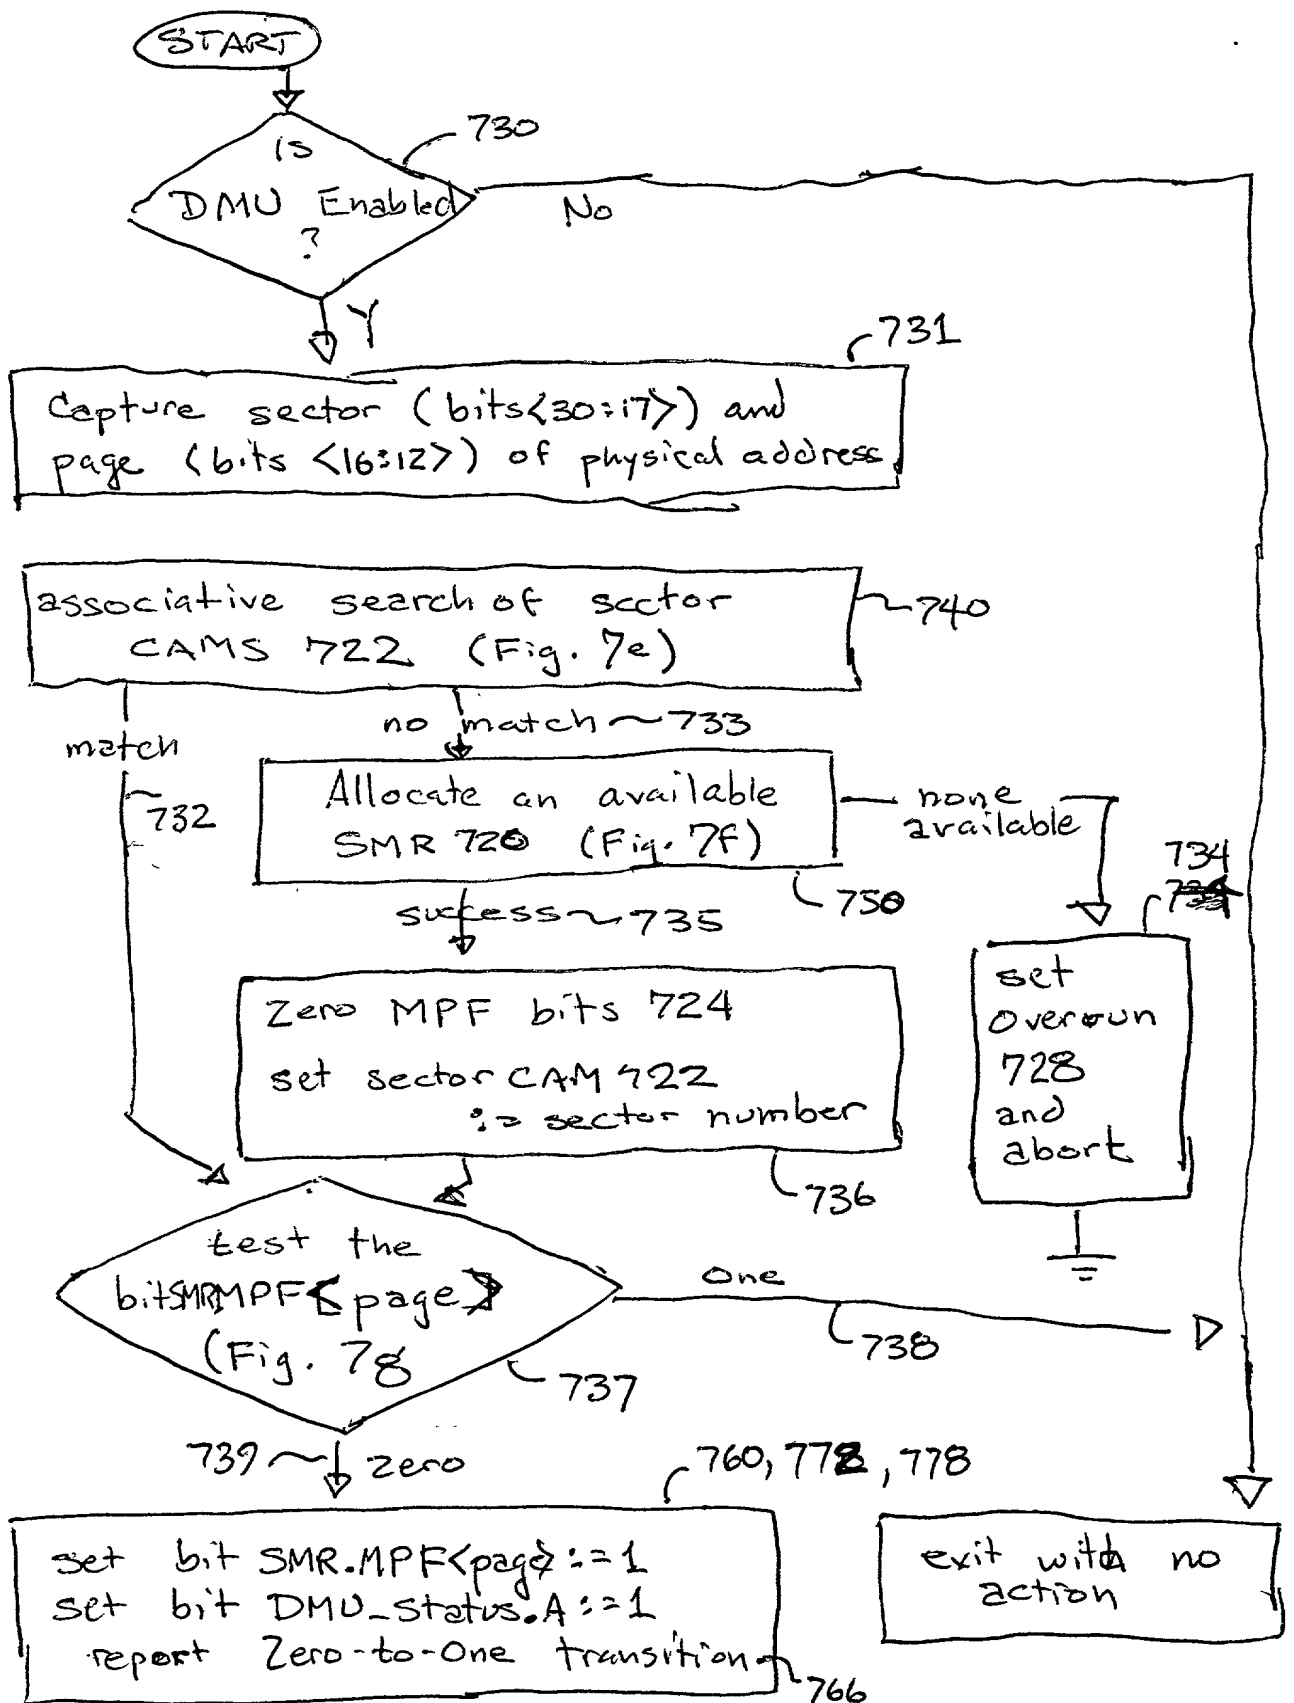 START
730
is
DMU Enabled
?
No
Y
731
Capture sector (bits<30:17>) and
page (bits <16:12>) of physical address
associative search of sector
CAMS 722 (Fig. 7e)
740
match
no match 733
732
Allocate an available
SMR 720 (Fig. 7f)
none
available
750
734
success 735
set
overrun
728
and
abort
Zero MPF bits 724
set sector CAM 722
:= sector number
736
test the
bit SMR MPF<page>
(Fig. 7g
One
738
737
739
zero
760, 772, 778
set bit SMR.MPF<page> :=1
set bit DMU_Status.A :=1
report Zero-to-One transition
766
exit with no
action